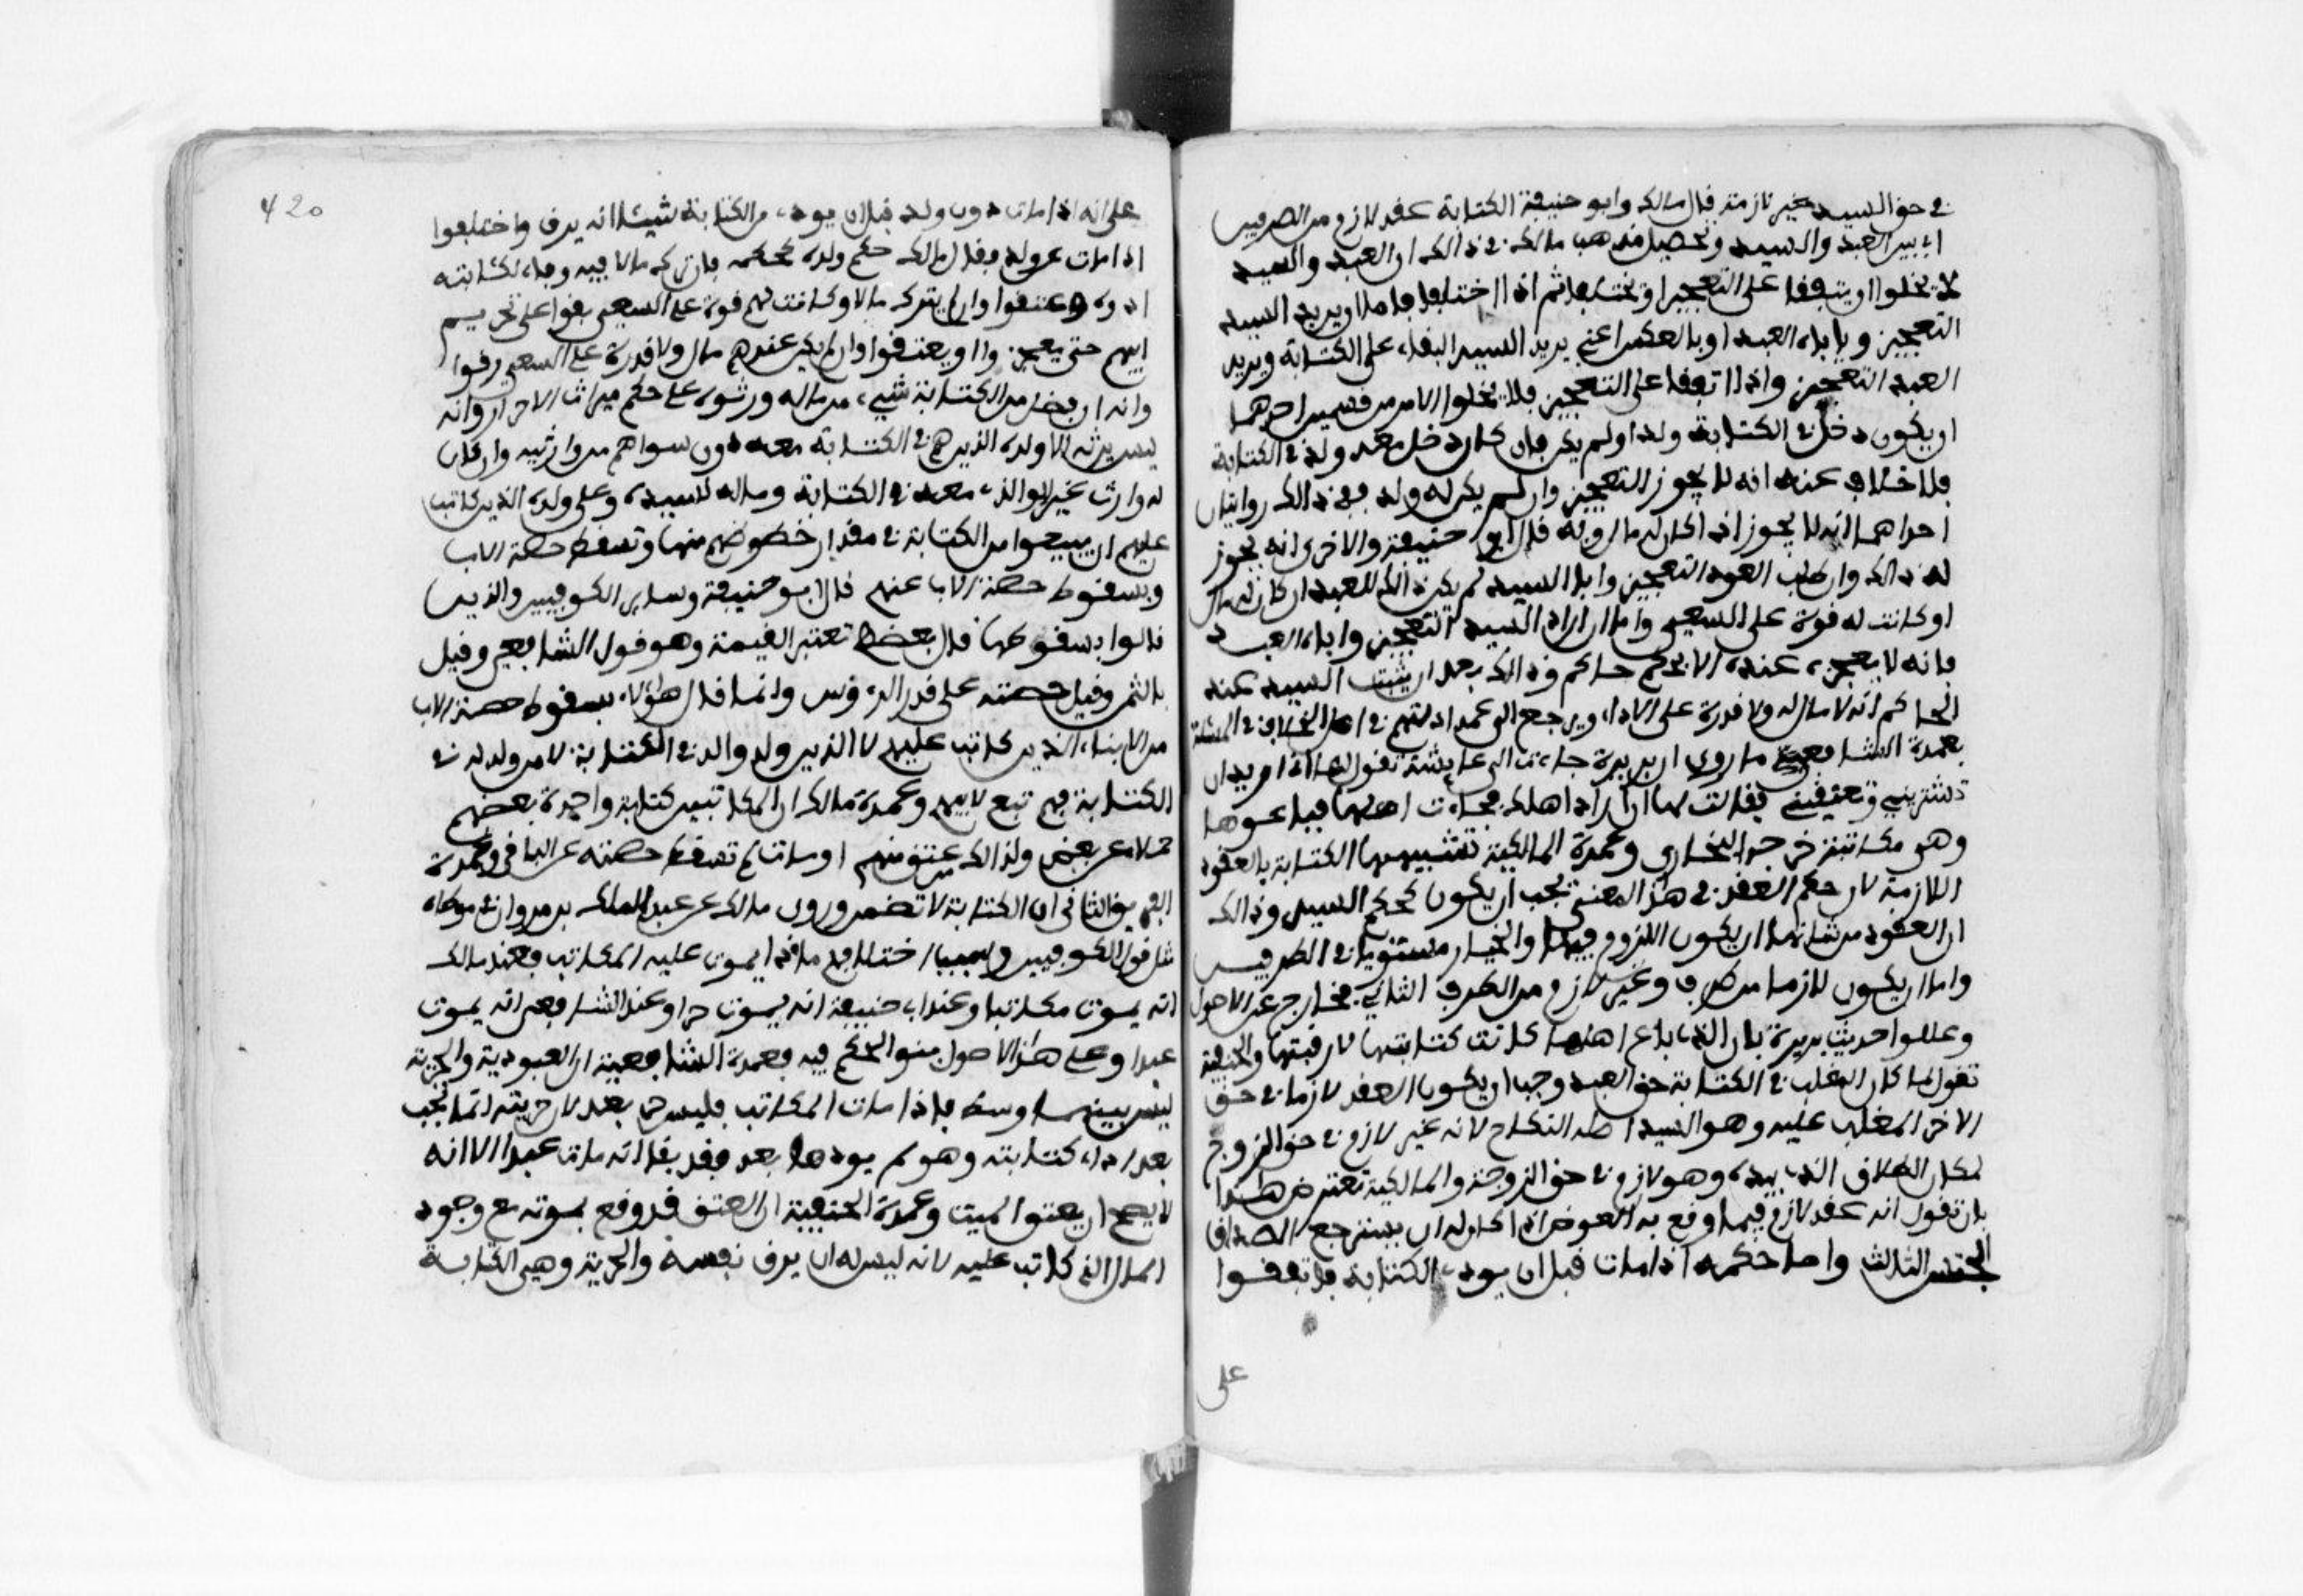 في حق السيد غير لازمة قال مالك وابو حنيفة الكتابة عقد لازم من الطرفين
اي بين العبد والسيد وتحصيل مذهب مالك في ذالك ان العبد والسيد
لا يخلوا ان يتفقا على التعجيز او يختلفا ثم اذا اختلفا فاما ان يريد السيد
التعجيز وياباه العبد او بالعكس اعني يريد السيد البقاء على الكتابة ويريد
العبد التعجيز واذا اتفقا على التعجيز فلا يخلوا الامر من قسمين احدهما
ان يكون دخل في الكتابة ولد او لم يكن فان كان دخل معه ولد في الكتابة
فلا خلاف عنده انه لا يجوز التعجيز وان لم يكن له ولد ففي ذالك روايتان
احداهما انه لا يجوز اذا كان له مال وبه قال ابو حنيفة والاخرى انه يجوز
له ذالك وان طلب العبد التعجيز وابا السيد لم يكن ذالك للعبد ان كان له مال
او كانت له قوة على السعي واما ان اراد السيد التعجيز واباه العبد
فانه لا يعجزه عنده الا بحكم حاكم وذالك بعد ان يثبت السيد عند
الحاكم انه لا مال له ولا قدرة على الاداء ويرجع الى عمد ادلتهم في اصل الخلاف في المسئلة
بعمدة الشافعي ما روي ان بريرة جاءت الى عايشة تقول لها اني اريد ان
تشتريني وتعتقيني فقالت لها ان اراد اهلك فجاءت اهلها فباعوها
وهي مكاتبة خرجه البخاري وعمدة المالكية تشبيههم الكتابة بالعقود
اللازمة لان حكم العقد في هذا المعنى يجب ان يكون كحكم السيد وذالك
ان العقود من شانها ان يكون اللزوم فيها والخيار مستويا في الطرفين
واما ان يكون لازما من طرف وغير لازم من الطرف الثاني فخارج عن الاصول
وعللوا حديث بريرة بان الذي باع اهلها كانت كتابتها لا رقبتها والحنفية
تقول لما كان المغلب في الكتابة حق العبد وجب ان يكون العقد لازما في حق
الاخر المغلب عليه وهو السيد اصله النكاح لانه غير لازم في حق الزوج
لمكان الطلاق الذي بيده وهو لازم في حق الزوجة والمالكية تعترض هذا
بان تقول انه عقد لازم فيما وقع به العوض اذا كان له ان يسترجع الصداق
الجنس الثالث واما حكمه اذا مات قبل ان يودي الكتابة فاتفقوا
على
420
على انه اذا مات دون ولد قبل ان يودي من الكتابة شيئا انه يرق واختلفوا
اذا مات عن ولد فقال مالك حكم ولده كحكمه فان ترك مالا فيه وفاء لكتابته
ادوه وعتقوا وان لم يترك مالا وكانت لهم قوة على السعي بقوا على نجوم
ابيهم حتى يعجزوا او يعتقوا وان لم يكن عندهم مال ولا قدرة على السعي رقوا
وانه ان فضل من الكتابة شيء من ماله ورثوه على حكم ميراث الاحرار وانه
ليس يرثه الا ولده الذين هم في الكتابة معه دون سواهم من وارثيه وان كان
له وارث غير الولد الذي معه في الكتابة وماله لسيده وعلى ولده الذين كاتب
عليهم ان يسعوا من الكتابة في مقدار حظوظهم منها وتسقط حصة الاب
وبسقوط حصة الاب عنهم قال ابو حنيفة وساير الكوفيين والذين
قالوا بسقوطها قال بعضهم تعتبر القيمة وهو قول الشافعي وقيل
بالثمن وقيل حصته على قدر الرءوس وانما قال هؤلاء بسقوط حصة الاب
من الابناء الذين كاتب عليهم لا الذين ولدوا له في الكتابة لان من ولد له في
الكتابة فهم تبع لابيهم وعمدة مالك ان المكاتبين كتابة واحدة بعضهم
حملاء عن بعض ولذالك من عتق منهم او مات لم تسقط حصته عن الباقي وعمدة
الفريق الثاني ان الكتابة لا تضمن وروى مالك عن عبد الملك بن مروان في موطاه
مثل قول الكوفيين وسبب اختلافهم ماذا يموت عليه المكاتب فعند مالك
انه يموت مكاتبا وعند ابي حنيفة انه يموت حرا وعند الشافعي انه يموت
عبدا وعلى هذا الاصل بنوا الحكم فيه فعمدة الشافعية ان العبودية والحرية
ليس بينهما وسط فاذا مات المكاتب فليس حر بعد لان حريته انما تجب
بعد اداء كتابته وهو لم يودها بعد فقد بقا انه مات عبدا لانه
لا يصح ان يعتق الميت وعمدة الحنفية ان العتق قد وقع بموته مع وجود
المال الذي كاتب عليه لانه ليس له ان يرق نفسه والحرية وهي الكتابة